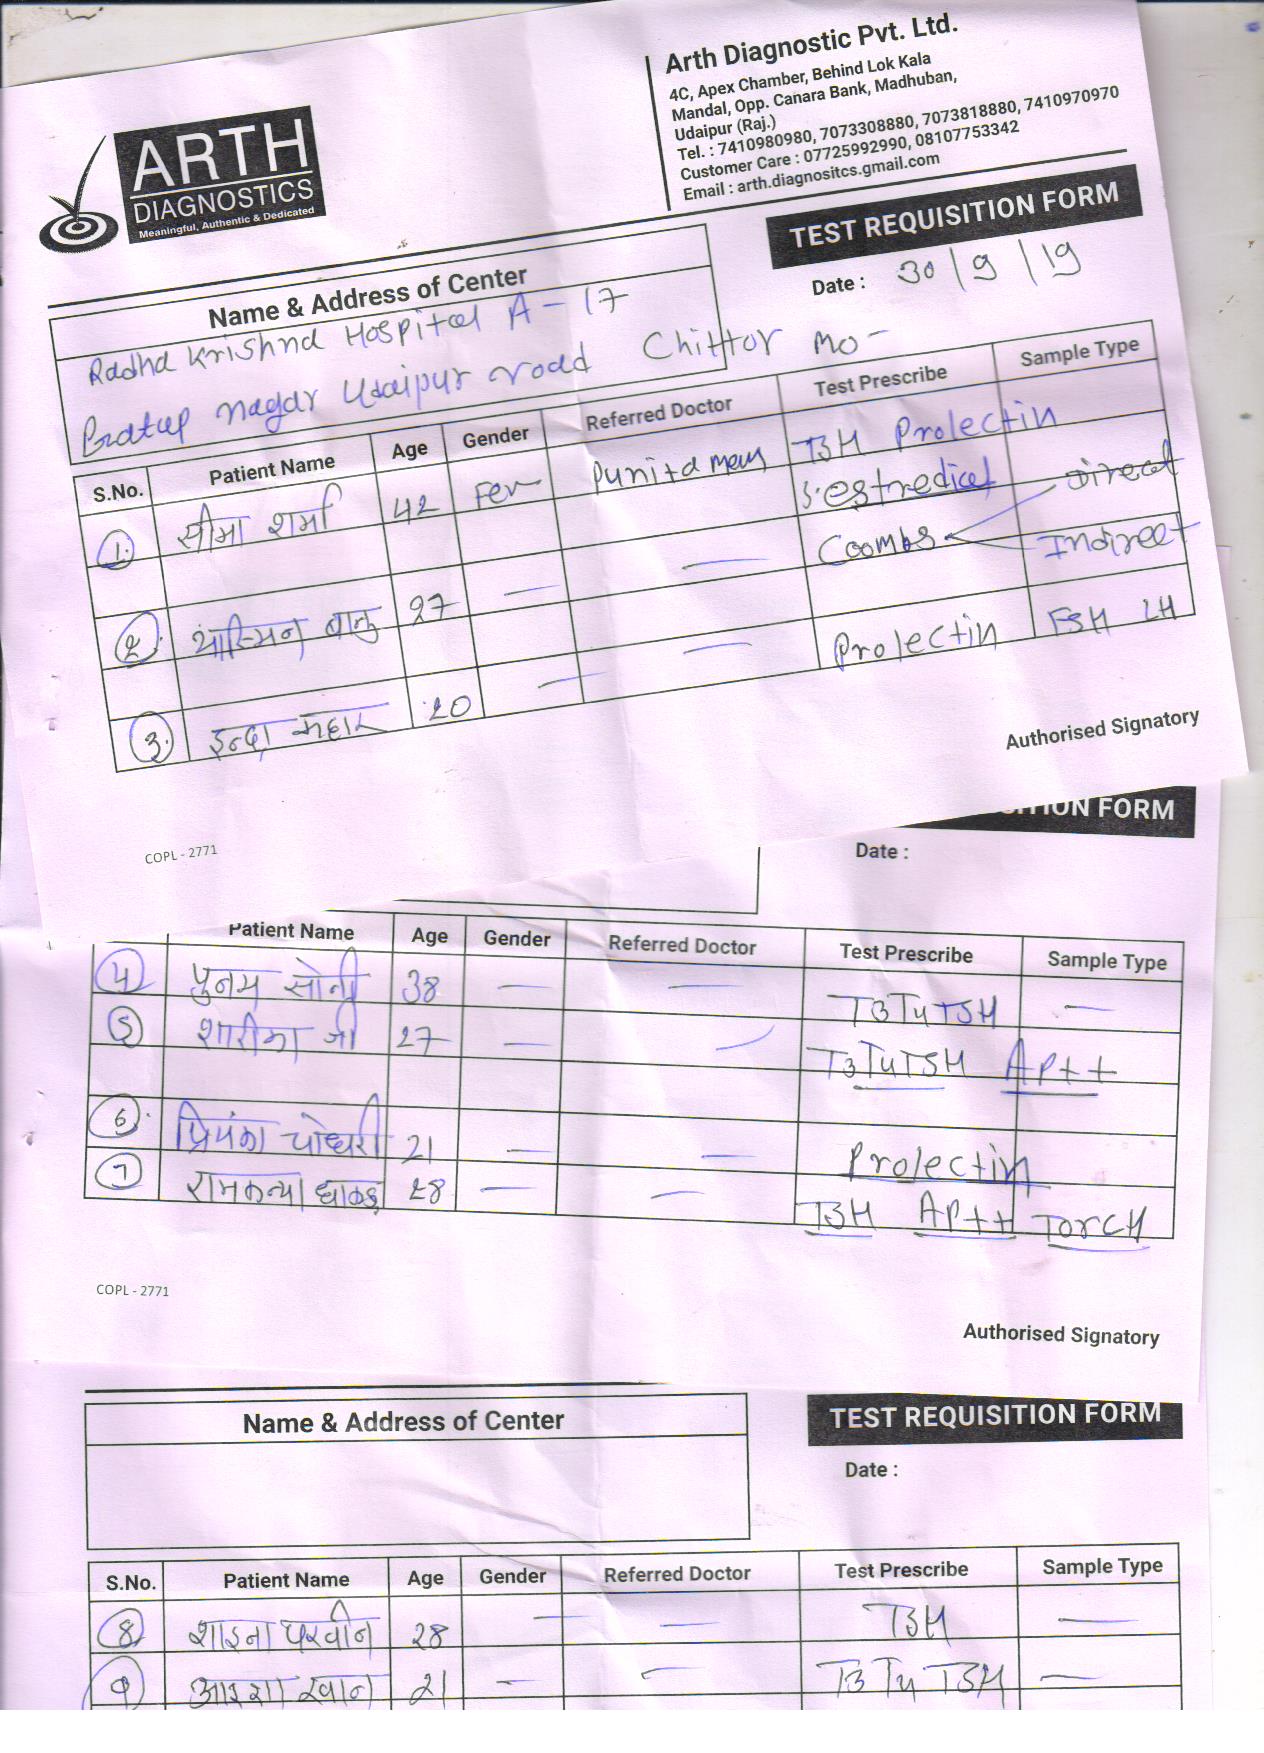 ARTH
DIAGNOSTICS
Meaningful, Authentic & Dedicated
Arth Diagnostic Pvt. Ltd.
4C, Apex Chamber, Behind Lok Kala
Mandal, Opp. Canara Bank, Madhuban,
Udaipur (Raj.)
Tel. : 7410980980, 7073308880, 7073818880, 7410970970
Customer Care : 07725992990, 08107753342
Email : arth.diagnositcs.gmail.com
TEST REQUISITION FORM
Date : 30/9/19
Name & Address of Center
Radha Krishna Hospital A - 17
Pratap nagar Udaipur road Chittor Mo -
S.No. Patient Name Age Gender Referred Doctor Test Prescribe Sample Type
1. सीमा शर्मा 42 Fem Punita mem TSH Prolectin
S. estredical
2. यास्मिन बानु 27 — — Coombs Direct
Indirect
3. इन्द्रा 20 — — Prolectin FSH LH
Authorised Signatory
COPL - 2771
ITION FORM
Date :
Patient Name Age Gender Referred Doctor Test Prescribe Sample Type
4 पुनम सोनी 38 — — T3T4TSH —
5 शारीका जी 27 — — T3T4TSH AP++
6. प्रियंका चोधरी 21 — — Prolectin
7 रामकन्या धाकड़ 28 — — TSH AP++ TORCH
COPL - 2771
Authorised Signatory
Name & Address of Center
TEST REQUISITION FORM
Date :
S.No. Patient Name Age Gender Referred Doctor Test Prescribe Sample Type
8 शाइना परवीन 28 — — TSH —
9 आइशा खान 21 — — T3 T4 TSH —